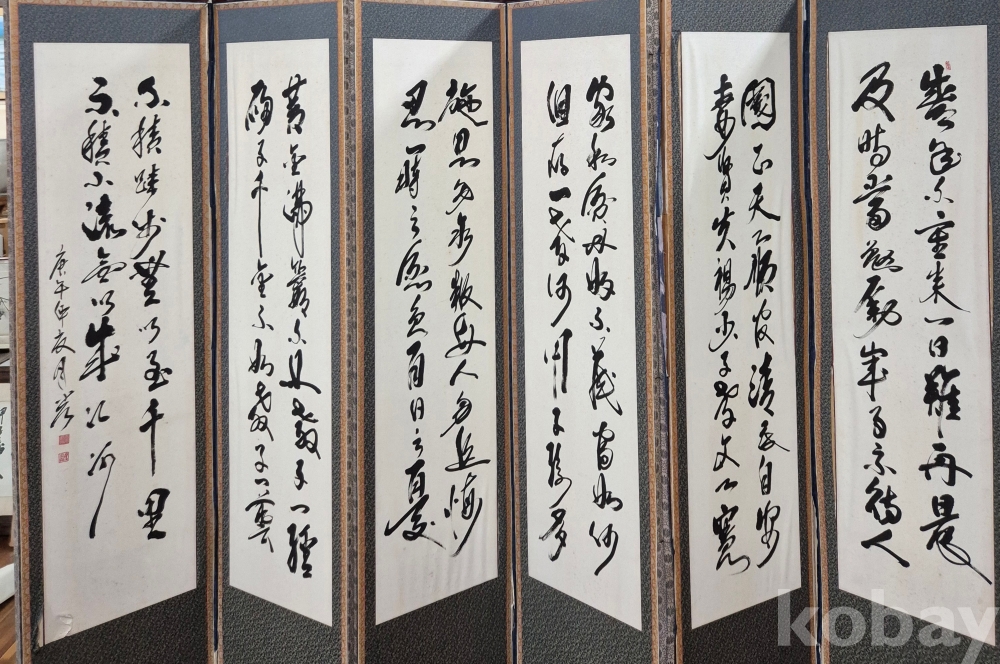 盛年不重來一日難再晨
及時當勉勵歲月不待人
國正天心順官淸民自安
妻賢夫禍少子孝父心寬
家和貧也好不義富如何
但存一子孝何用子孫多
施恩勿求報與人勿追悔
忍一時之忿免百日之憂
黃金滿籯不如敎子一經
賜子千金不如敎子一藝
不積蹞步無以至千里
不積小流無以成江河
庚午仲夏月
kobay